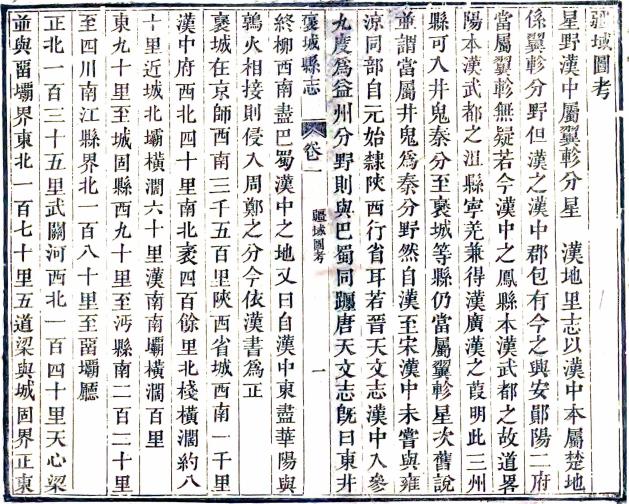 疆域圖考
星野漢中屬翼軫分星　漢地里志以漢中本屬楚地
係翼軫分野但漢之漢中郡包有今之興安鄖陽二府
當屬翼軫無疑若今漢中之鳳縣本漢武都之故道畧
陽本漢武都之沮縣寧羌兼得漢廣漢之葭明此三州
縣可入井鬼秦分至襃城等縣仍當屬翼軫星次舊說
並謂當屬井鬼爲秦分野然自漢至宋漢中未嘗與雍
涼同部自元始隸陝西行省耳若晉天文志漢中入參
九度爲益州分野則與巴蜀同躔唐天文志旣曰東井
襃城縣志　卷一　疆域圖考　一
終柳西南盡巴蜀漢中之地又曰自漢中東盡華陽與
鶉火相接則侵入周鄭之分今依漢書爲正
襃城在京師西南三千五百里陝西省城西南一千里
漢中府西北四十里南北袤四百餘里北棧橫濶約八
十里近城北壩橫濶六十里漢南南壩橫濶百里
東九十里至城固縣西九十里至沔縣南二百二十里
至四川南江縣界北一百八十里至畱壩廳
正北一百三十五里武關河西北一百四十里天心梁
並與畱壩界東北一百七十里五道梁與城固界正東